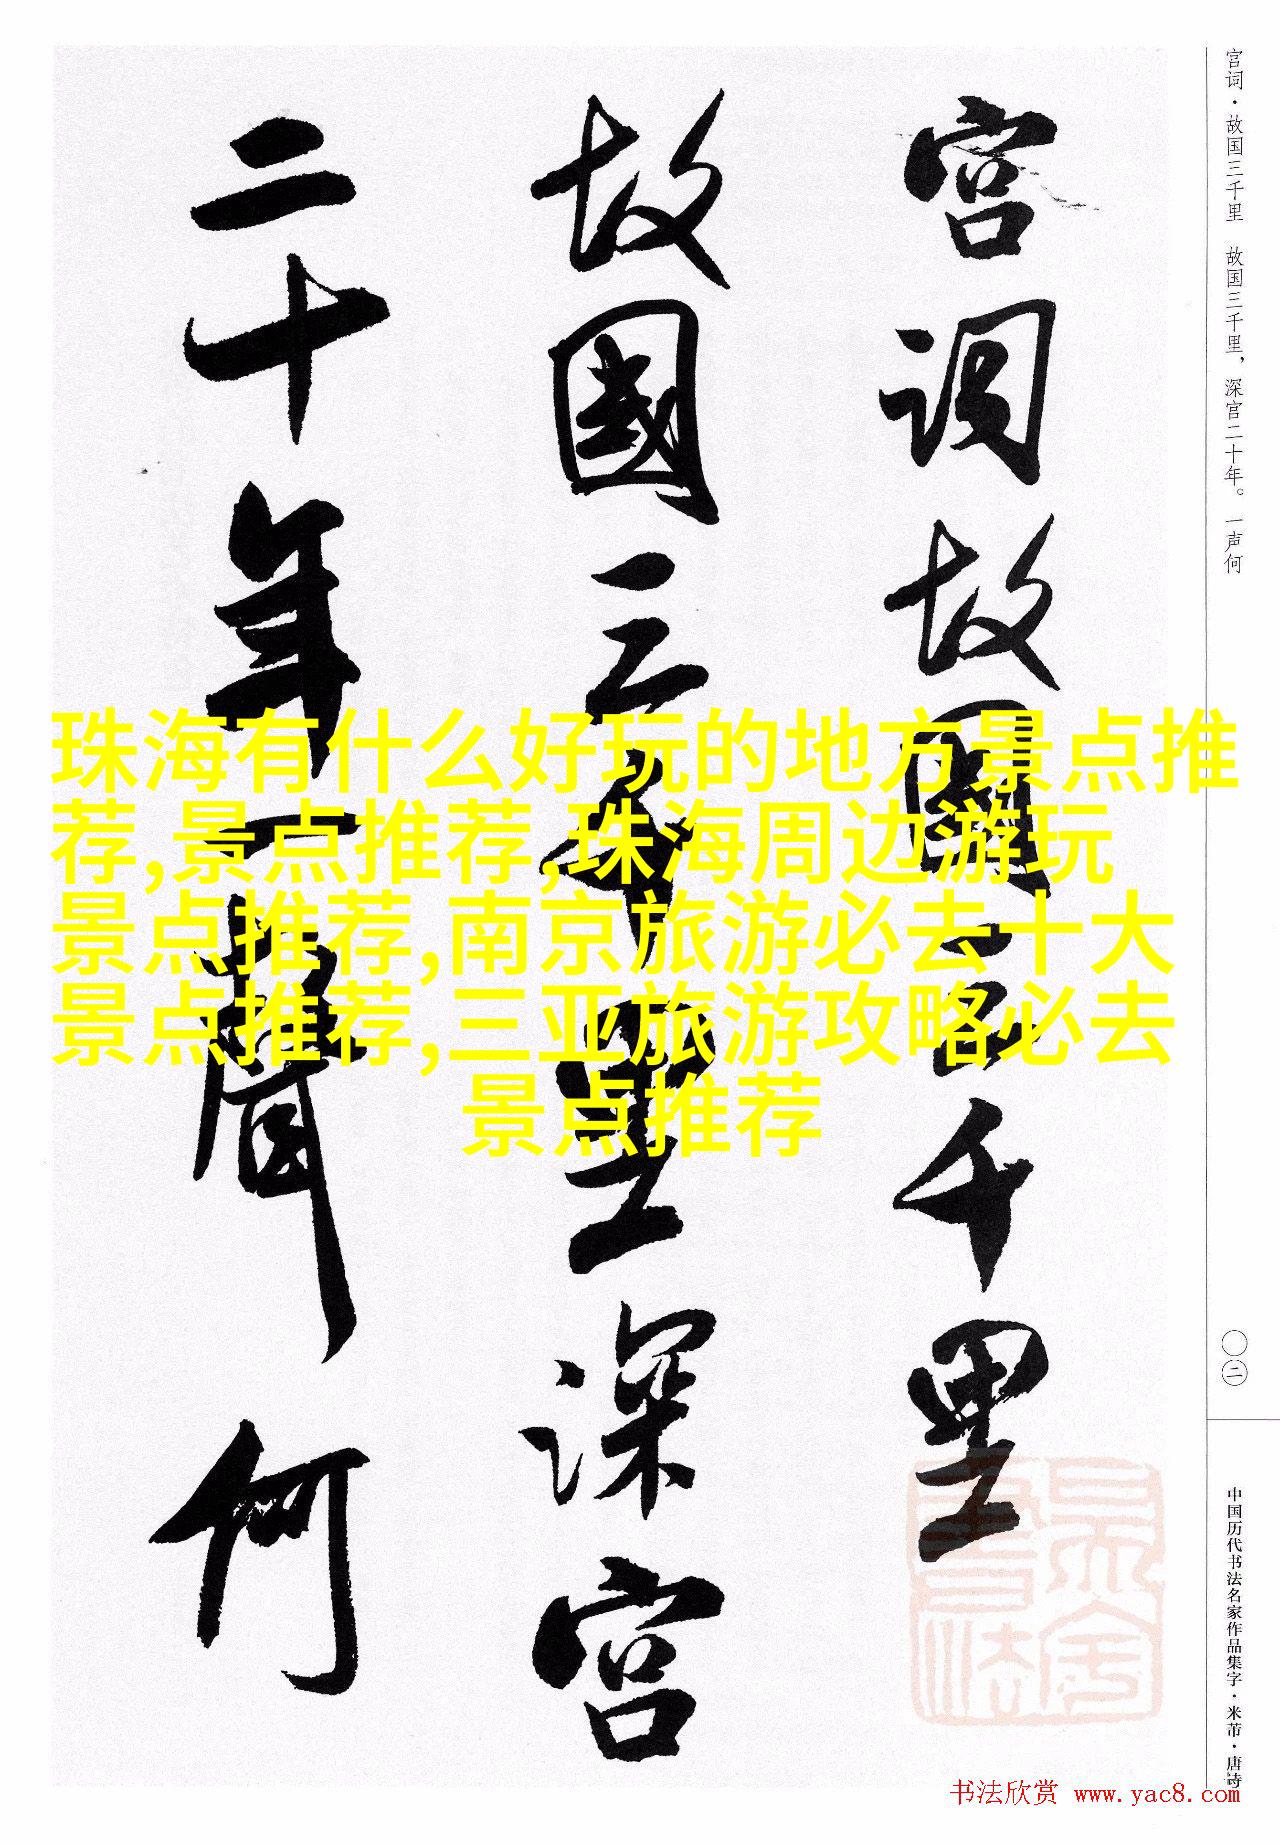 宫词·故国三千里 故国三千里，深宫二十年。一声何
宫词故國三千里
故國三千里深宫
二十年一聲何
珠海有什么好玩的地方景点推
荐,景点推荐,珠海周边游玩
景点推荐,南京旅游必去十大
景点推荐,三亚旅游攻略必去
景点推荐
〇二
中国历代书法名家作品集字·米芾·唐诗
书法欣赏 www.yac8.com